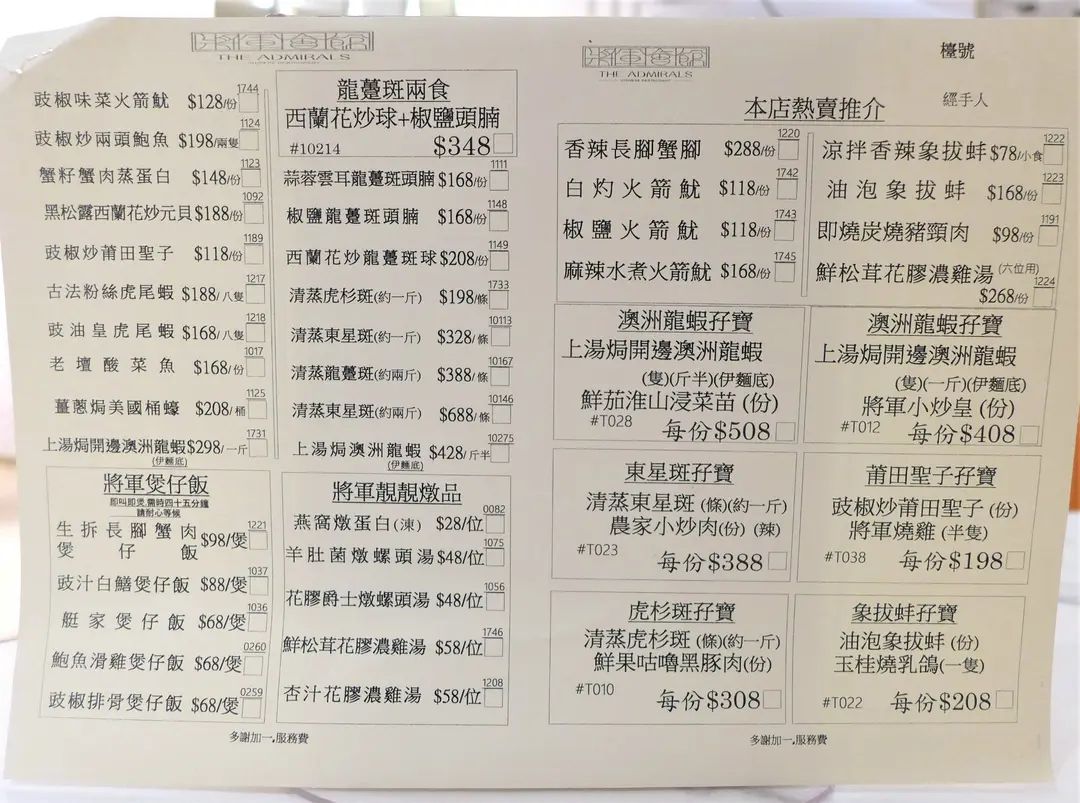 將軍會館
THE ADMIRALS
豉椒味菜火箭魷 $128/份 1744
豉椒炒兩頭鮑魚 $198/兩隻 1124
蟹籽蟹肉蒸蛋白 $148/份 1123
黑松露西蘭花炒元貝 $188/份 1092
豉椒炒莆田聖子 $118/份 1189
古法粉絲虎尾蝦 $188/八隻 1217
豉油皇虎尾蝦 $168/八隻 1218
老壇酸菜魚 $168/份 1017
薑蔥焗美國桶蠔 $208/桶 1125
上湯焗開邊澳洲龍蝦 $298/一斤 1731
(伊麵底)
將軍煲仔飯
即叫即煲,需時四十五分鐘
請耐心等候
生拆長腳蟹肉
煲仔飯 $98/煲 1221
豉汁白鱔煲仔飯 $88/煲 1037
艇家煲仔飯 $68/煲 1036
鮑魚滑雞煲仔飯 $68/煲 0260
豉椒排骨煲仔飯 $68/煲 0259
龍躉斑兩食
西蘭花炒球+椒鹽頭腩
#10214 $348
蒜蓉雲耳龍躉斑頭腩 $168/份 1111
椒鹽龍躉斑頭腩 $168/份 1148
西蘭花炒龍躉斑球 $208/份 1149
清蒸虎杉斑(約一斤) $198/條 1733
清蒸東星斑(約一斤) $328/條 10113
清蒸龍躉斑(約兩斤) $388/條 10167
清蒸東星斑(約兩斤) $688/條 10146
上湯焗澳洲龍蝦 $428/斤半 10275
(伊麵底)
將軍靚靚燉品
燕窩燉蛋白(涷) $28/位 0082
羊肚菌燉螺頭湯 $48/位 1075
花膠爵士燉螺頭湯 $48/位 1056
鮮松茸花膠濃雞湯 $58/位 1746
杏汁花膠濃雞湯 $58/位 1208
多謝加一服務費
將軍會館
THE ADMIRALS
檯號
經手人
本店熱賣推介
香辣長腳蟹腳 $288/份 1220
白灼火箭魷 $118/份 1742
椒鹽火箭魷 $118/份 1743
麻辣水煮火箭魷 $168/份 1745
涼拌香辣象拔蚌 $78/小食 1222
油泡象拔蚌 $168/份 1223
即燒炭燒豬頸肉 $98/份 1191
鮮松茸花膠濃雞湯 (六位用)
$268/份 1224
澳洲龍蝦孖寶
上湯焗開邊澳洲龍蝦
(隻)(斤半)(伊麵底)
鮮茄淮山浸菜苗 (份)
#T028 每份$508
澳洲龍蝦孖寶
上湯焗開邊澳洲龍蝦
(隻)(一斤)(伊麵底)
將軍小炒皇 (份)
#T012 每份$408
東星斑孖寶
清蒸東星斑 (條)(約一斤)
農家小炒肉(份) (辣)
#T023 每份$388
莆田聖子孖寶
豉椒炒莆田聖子 (份)
將軍燒雞 (半隻)
#T038 每份$198
虎杉斑孖寶
清蒸虎杉斑 (條)(約一斤)
鮮果咕嚕黑豚肉(份)
#T010 每份$308
象拔蚌孖寶
油泡象拔蚌 (份)
玉桂燒乳鴿(一隻)
#T022 每份$208
多謝加一服務費